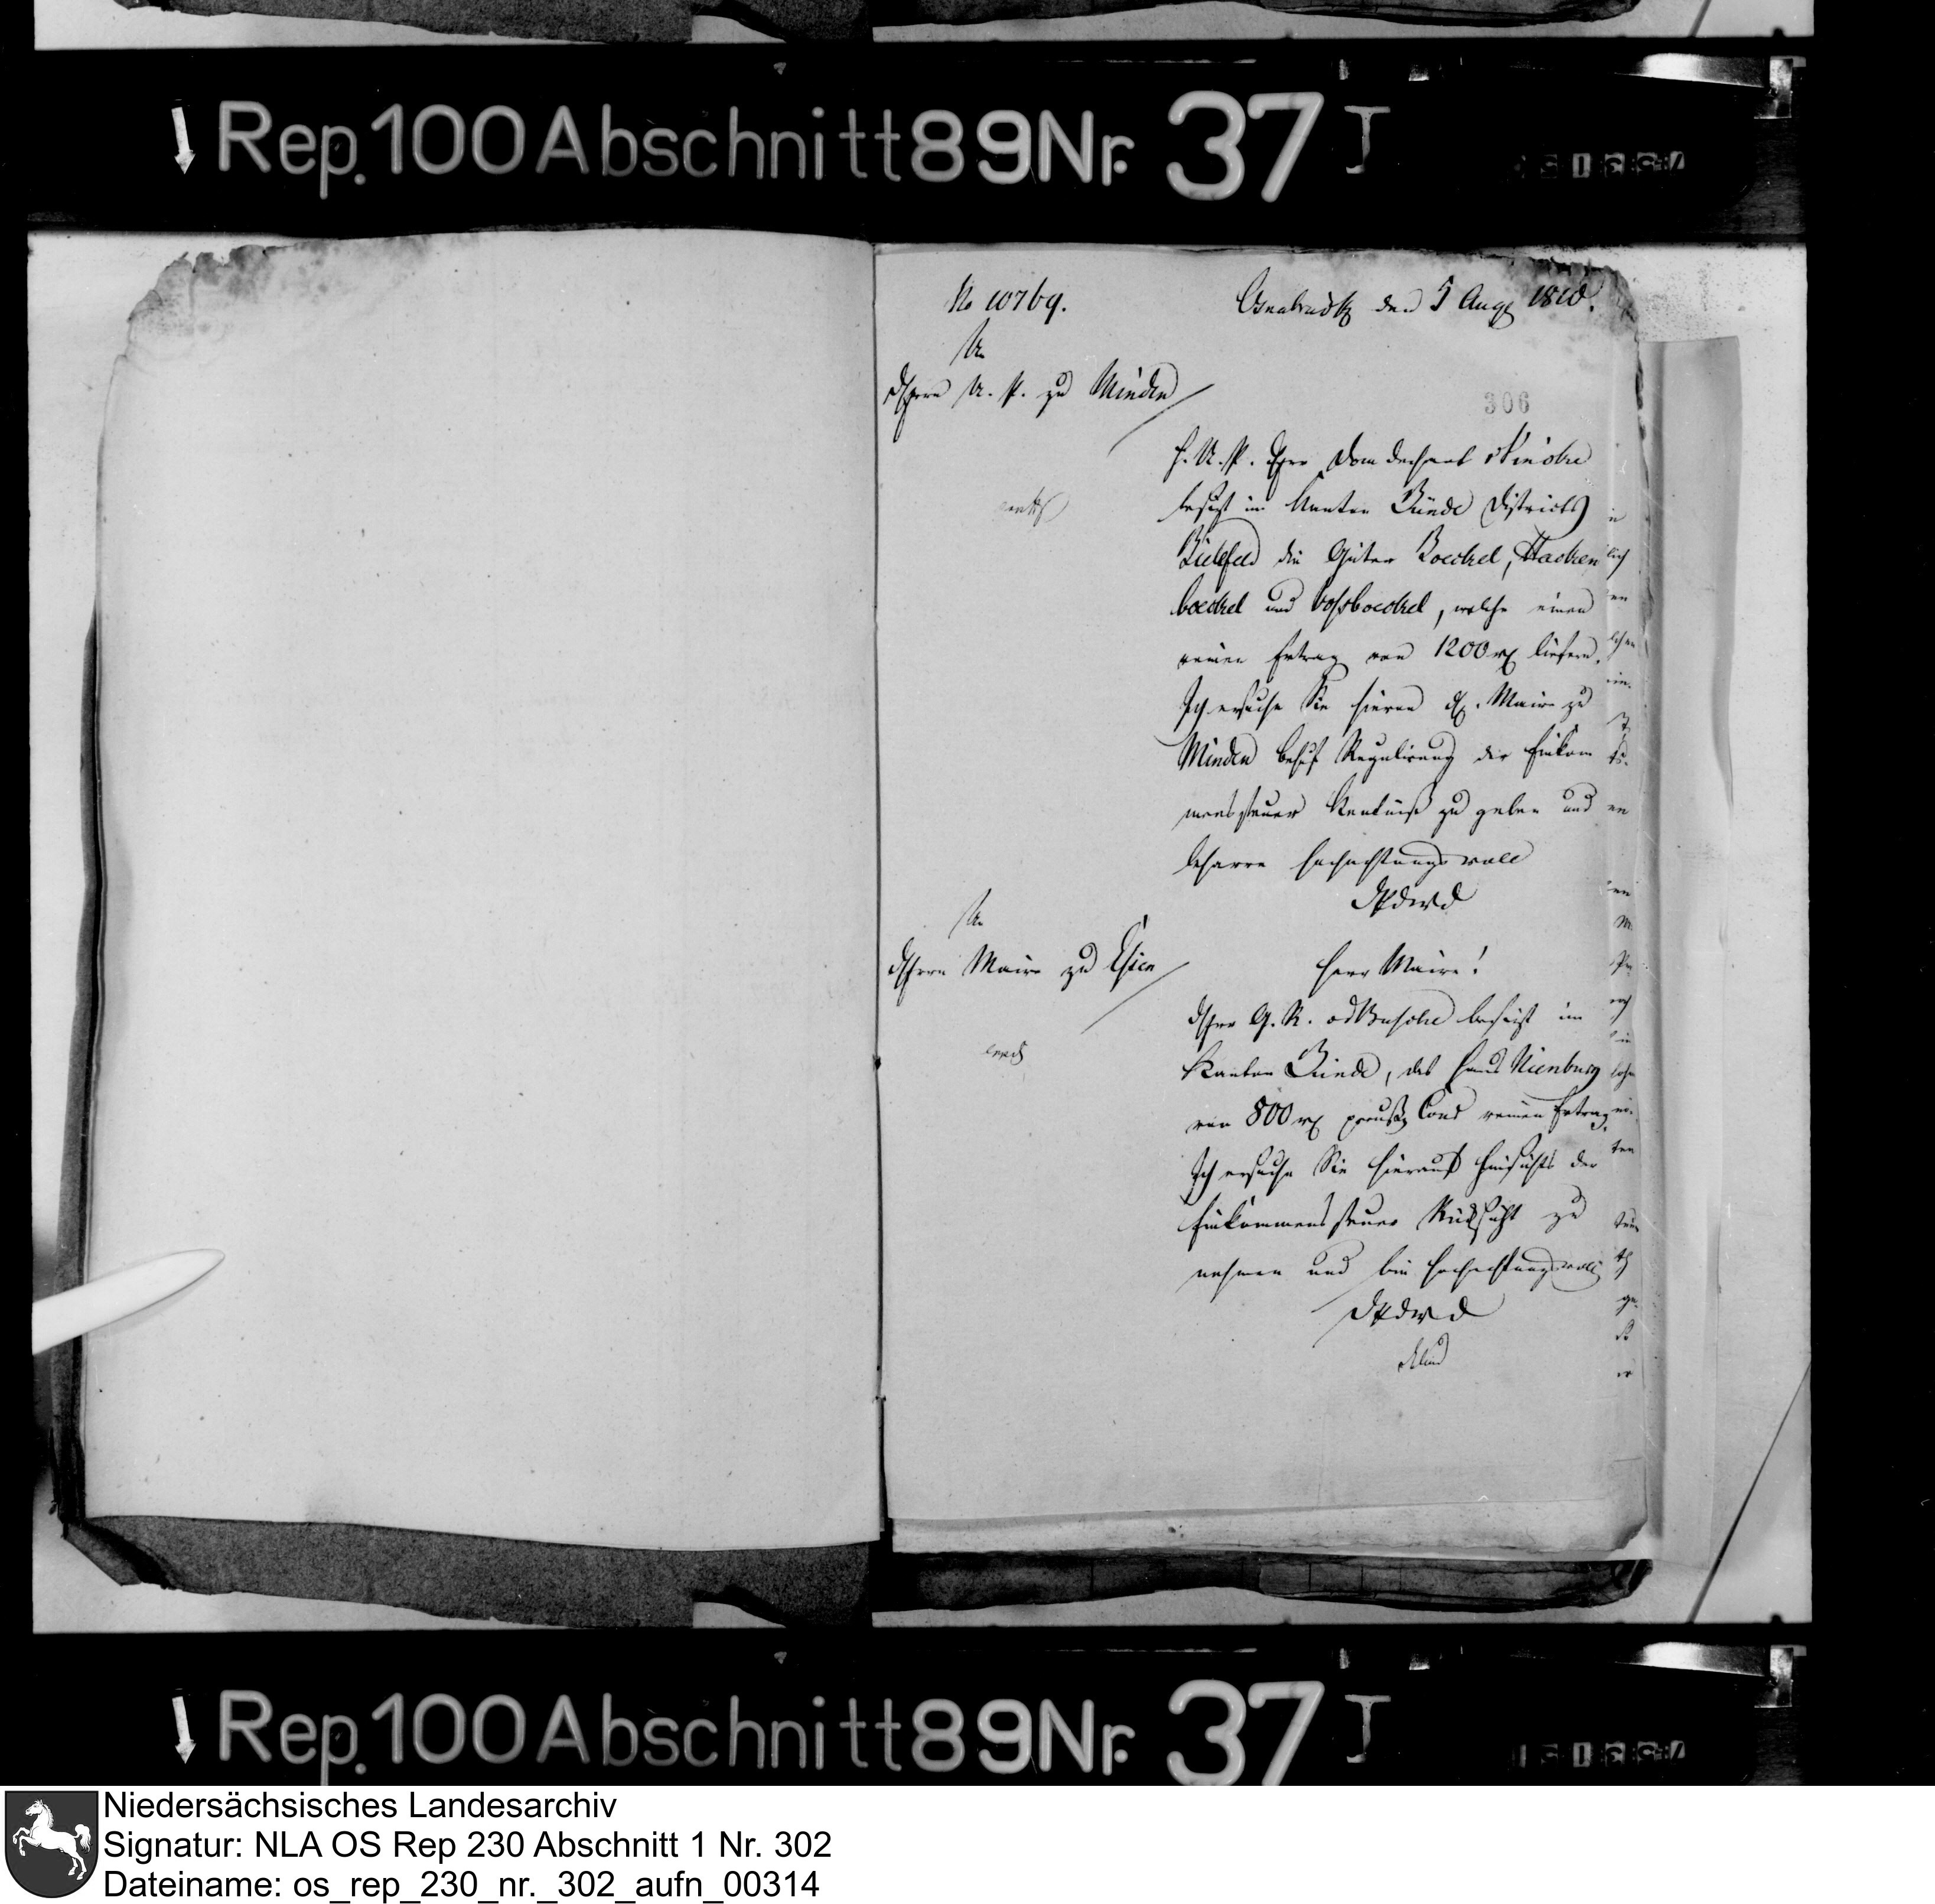 Rep. 100 Abschnitt 89 Nr. 37 I
No 10769.
Osnabrück den 5 Aug 1810.
An
d Herrn U. P. zu Minden
306
H. U. P. Der Herr Dom dechant
besizt im Kanton Bünde Districts
Bielefeld die Güter Boeckel, Hacken
boeckel und Vossboeckel, welche einen
reinen Ertrag von 1200 rx liefern.
Ich ersuche Sie hievon d H. Maire zu
Minden behuf Regulirung der Einkom
menssteuer Kentniß zu geben und
beharre hochachtungsvoll
An
d Herrn Maire zu
Herr Maire!
Der Herr G. R. vd Bussche besizt im
Kanton Bünde, das Haus Nienburg
von 800 rx preuß Cour reinen Ertrag.
Ich ersuche Sie hierauf hinsichts der
Einkommenssteuer Rücksicht zu
nehmen und bin hochachtungsvoll
Rep. 100 Abschnitt 89 Nr. 37 I
Niedersächsisches Landesarchiv
Signatur: NLA OS Rep 230 Abschnitt 1 Nr. 302
Dateiname: os_rep_230_nr._302_aufn_00314